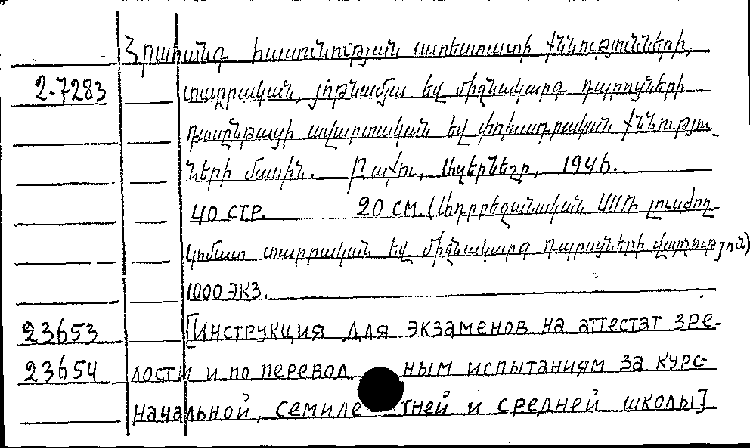 Հրահանգ հասունության ատեստատի քննությունների,
2-7283 տարրական, յոթնամյա եվ միջնակարգ դպրոցների
դասընթացի ավարտական եվ փոխադրական քննությու-
ների մասին. Բաքու, Ազերնեշր, 1946.
40 стр. 20 см. (Ադրբեջանական ՍՍՌ լուսժող-
կոմատ տարրական եվ միջնակարգ դպրոցների վարչություն)
1000 экз.
23653 [Инструкция для экзаменов на аттестат зре-
23654 лости и по перевод ным испытаниям за курс
начальной, семиле тней и средней школы]